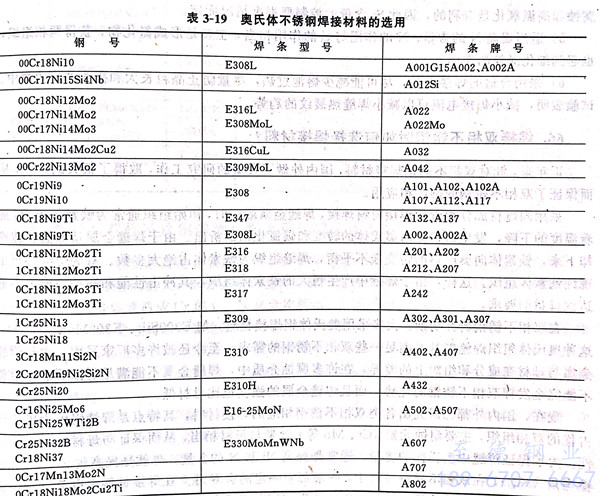 表 3-19 奥氏体不锈钢焊接材料的选用
钢 号 焊 条 型 号 焊 条 牌 号
00Cr18Ni10 E308L A001G15A002、A002A
00Cr17Ni15Si4Nb A012Si
00Cr18Ni12Mo2
00Cr17Ni14Mo2 E316L A022
00Cr17Ni14Mo3 E308MoL A022Mo
00Cr18Ni14Mo2Cu2 E316CuL A032
00Cr22Ni13Mo2 E309MoL A042
0Cr19Ni9 E308 A101、A102、A102A
0Cr19Ni10 A107、A112、A117
0Cr18Ni9Ti E347 A132、A137
1Cr18Ni9Ti E308L A002、A002A
0Cr18Ni12Mo2Ti E316 A201、A202
1Cr18Ni12Mo2Ti E318 A212、A207
0Cr18Ni12Mo3Ti E317 A242
1Cr18Ni12Mo3Ti
1Cr25Ni13 E309 A302、A301、A307
1Cr25Ni18
3Cr18Mn11Si2N E310 A402、A407
2Cr20Mn9Ni2Si2N
4Cr25Ni20 E310H A432
Cr16Ni25Mo6 E16-25MoN A502、A507
Cr15Ni25WTi2B
Cr25Ni32B E330MoMnWNb A607
Cr18Ni37
0Cr17Mn13Mo2N A707
0Cr18Ni18Mo2Cu2Ti A802